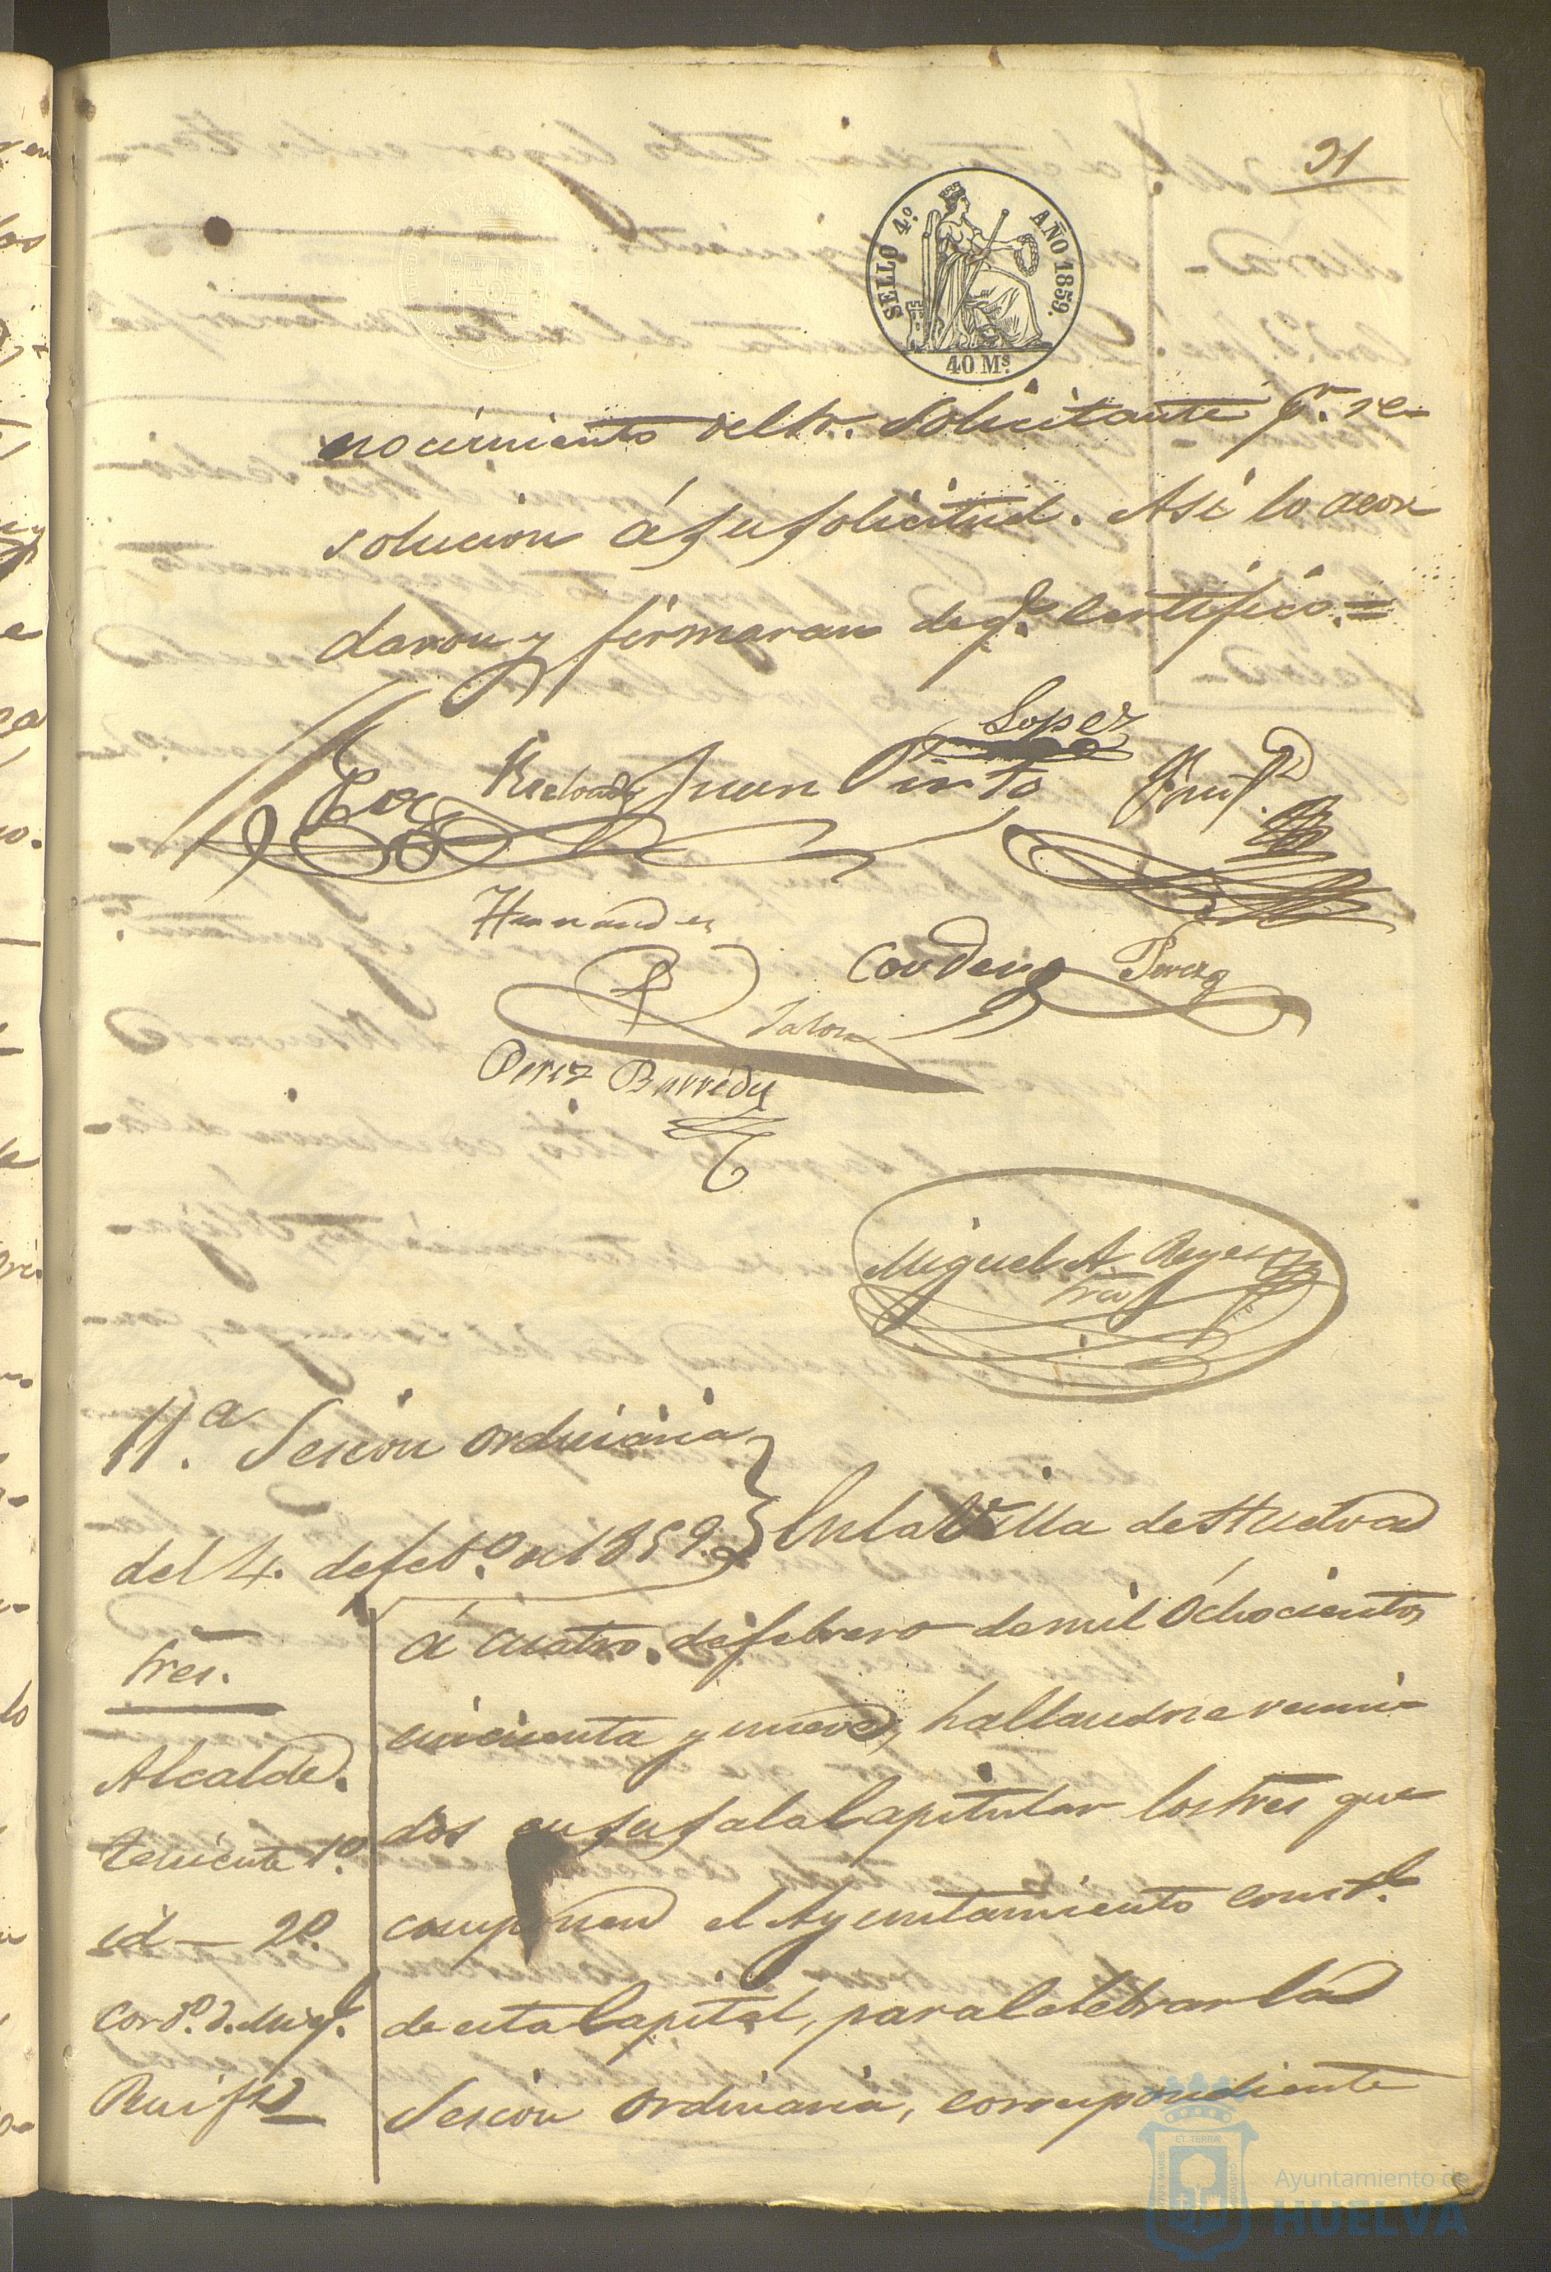 31
SELLO 4.º AÑO 1859.
40 Ms.
nocimiento del Sr. Solicitante pr. re-
solucion á su solicitud. Asi lo acor
daron y firmaran de qe. certifico.=
Lopez
Juan Pinto
Hernandez
Perez
Perez Barreda
Miguel A. Reyes
Srio
11.a Sesion ordinaria
del 4. de febo. de 1859.
En la Villa de Huelva
á cuatro. de febrero de mil Ochocientos
cincuenta y nueve, hallandose reuni-
dos en su sala Capitular los Sres que
componen el Ayuntamiento constl.
de esta Capital, para celebrar la
Sesion ordinaria, correspondiente
Sres.
Alcalde.
teniente 1º.
id — 2º.
Cordo. d. Migl.
Ruifz
Ayuntamiento de
HUELVA